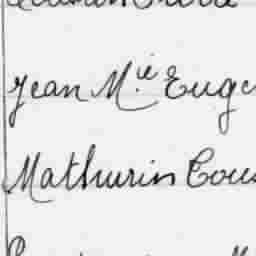 Jean M.ie Euge
Mathurin Cous